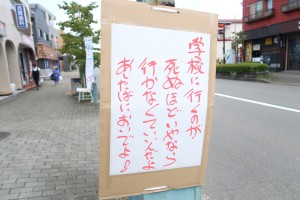 学校に行くのが
死ぬほどいやなら
行かなくていいんだよ
あそびにおいでよ♪